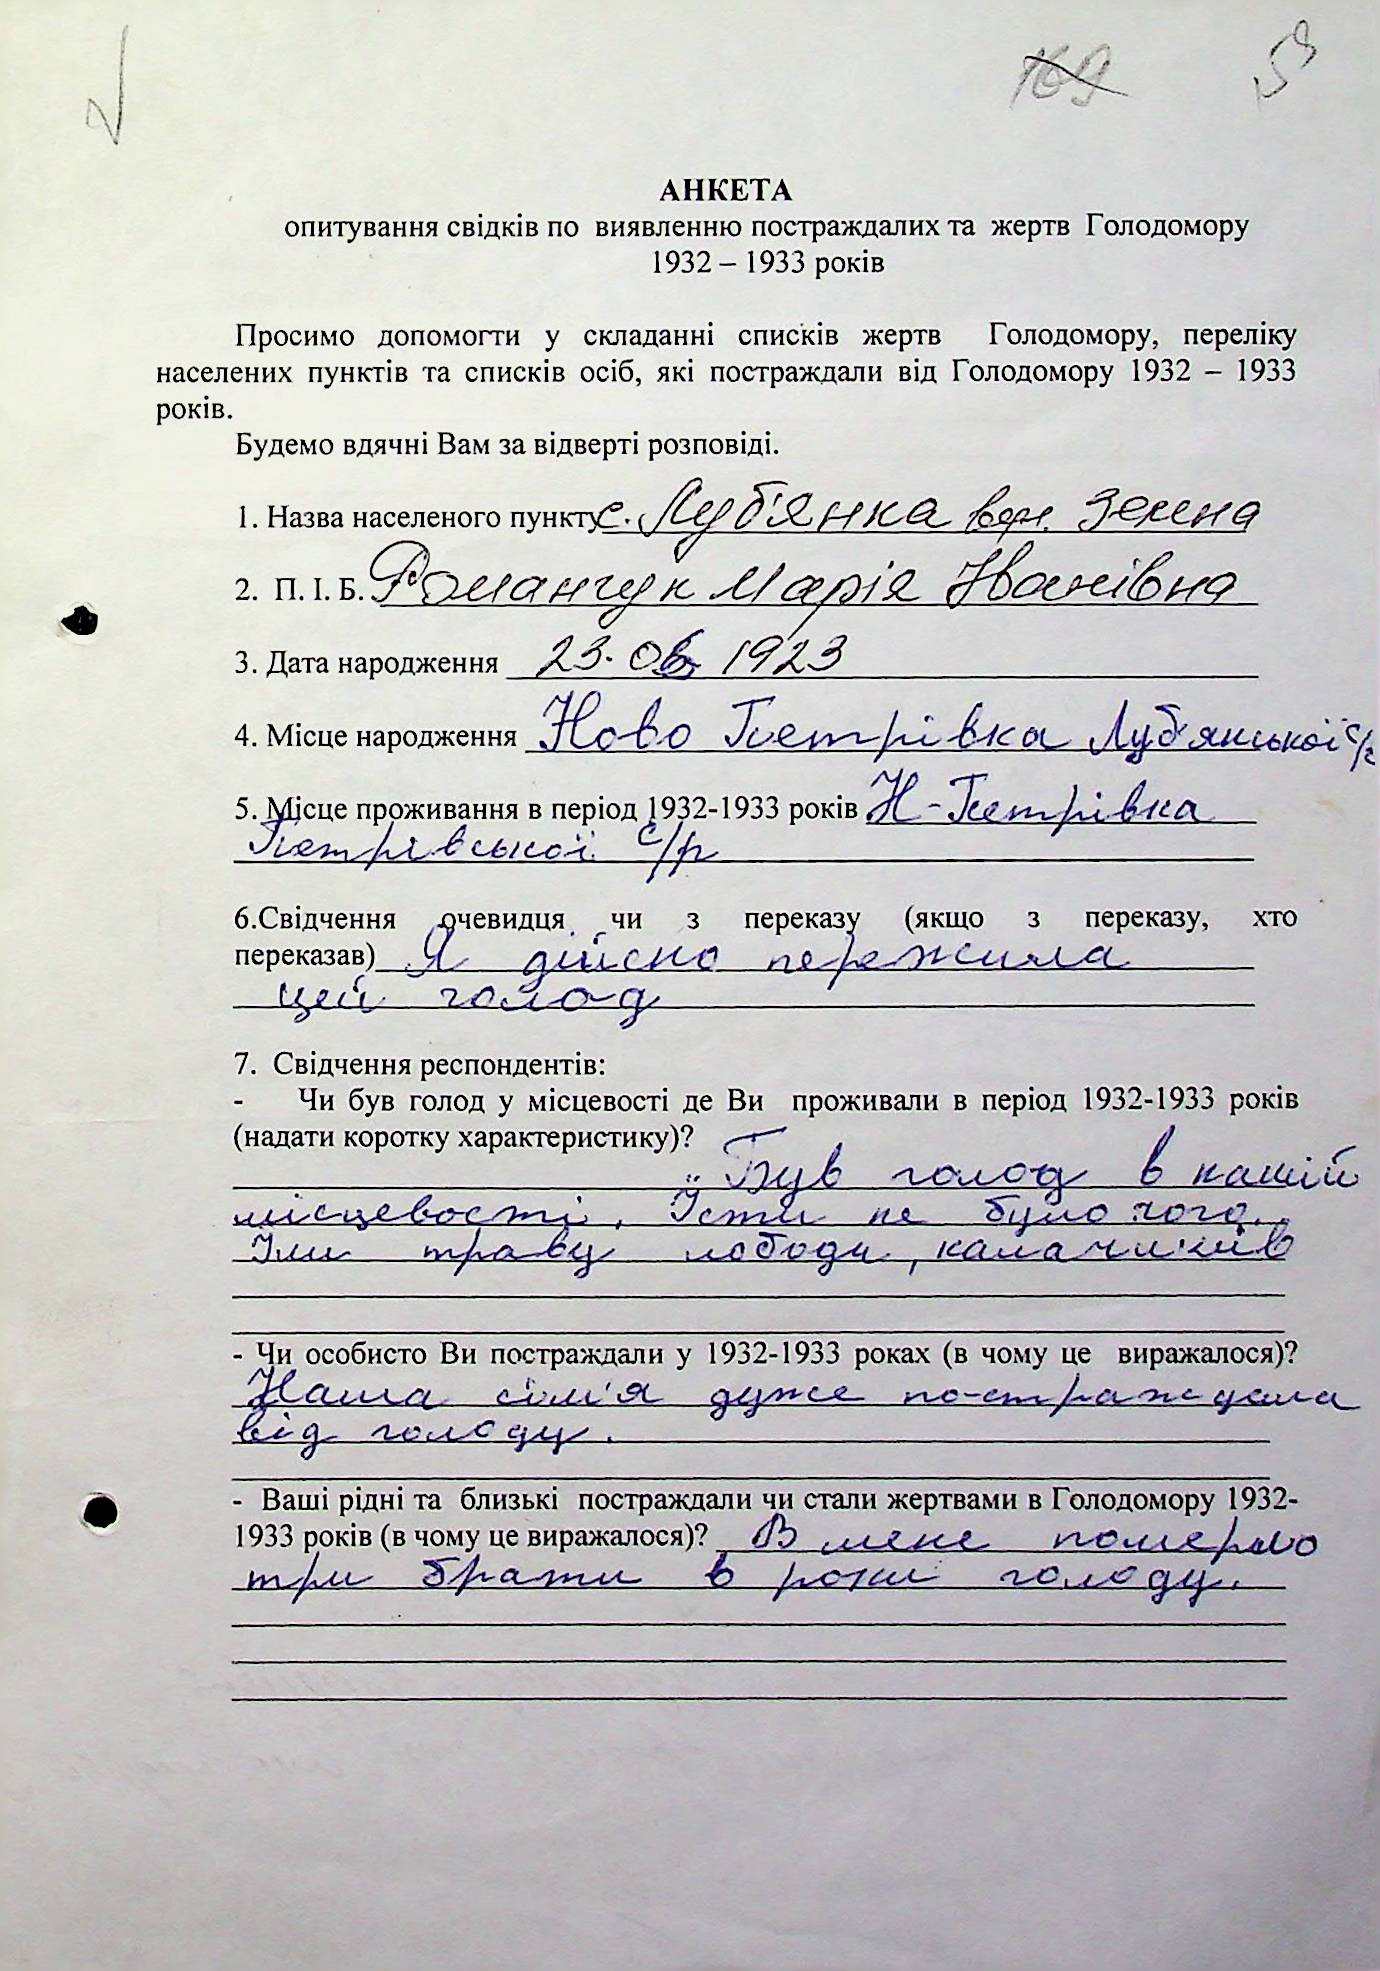 169 59
АНКЕТА
опитування свідків по виявленню постраждалих та жертв Голодомору
1932 – 1933 років
Просимо допомогти у складанні списків жертв Голодомору, переліку
населених пунктів та списків осіб, які постраждали від Голодомору 1932 – 1933
років.
Будемо вдячні Вам за відверті розповіді.
1. Назва населеного пункту с. Луб'янка вул. Зелена
2. П. І. Б. Романчук Марія Іванівна
3. Дата народження 23. 06 1923
4. Місце народження Ново Петрівка Луб'янської с/р
5. Місце проживання в період 1932-1933 років Н-Петрівка
Петрівської с/р
6.Свідчення очевидця чи з переказу (якщо з переказу, хто
переказав) Я дійсно пережила
цей голод
7. Свідчення респондентів:
- Чи був голод у місцевості де Ви проживали в період 1932-1933 років
(надати коротку характеристику)?
Був голод в нашій
місцевості. Їсти не було чого.
Їли траву лободи, калачиків
- Чи особисто Ви постраждали у 1932-1933 роках (в чому це виражалося)?
Наша сім'я дуже постраждала
від голоду.
- Ваші рідні та близькі постраждали чи стали жертвами в Голодомору 1932-
1933 років (в чому це виражалося)? В мене померло
три брати в роки голоду.